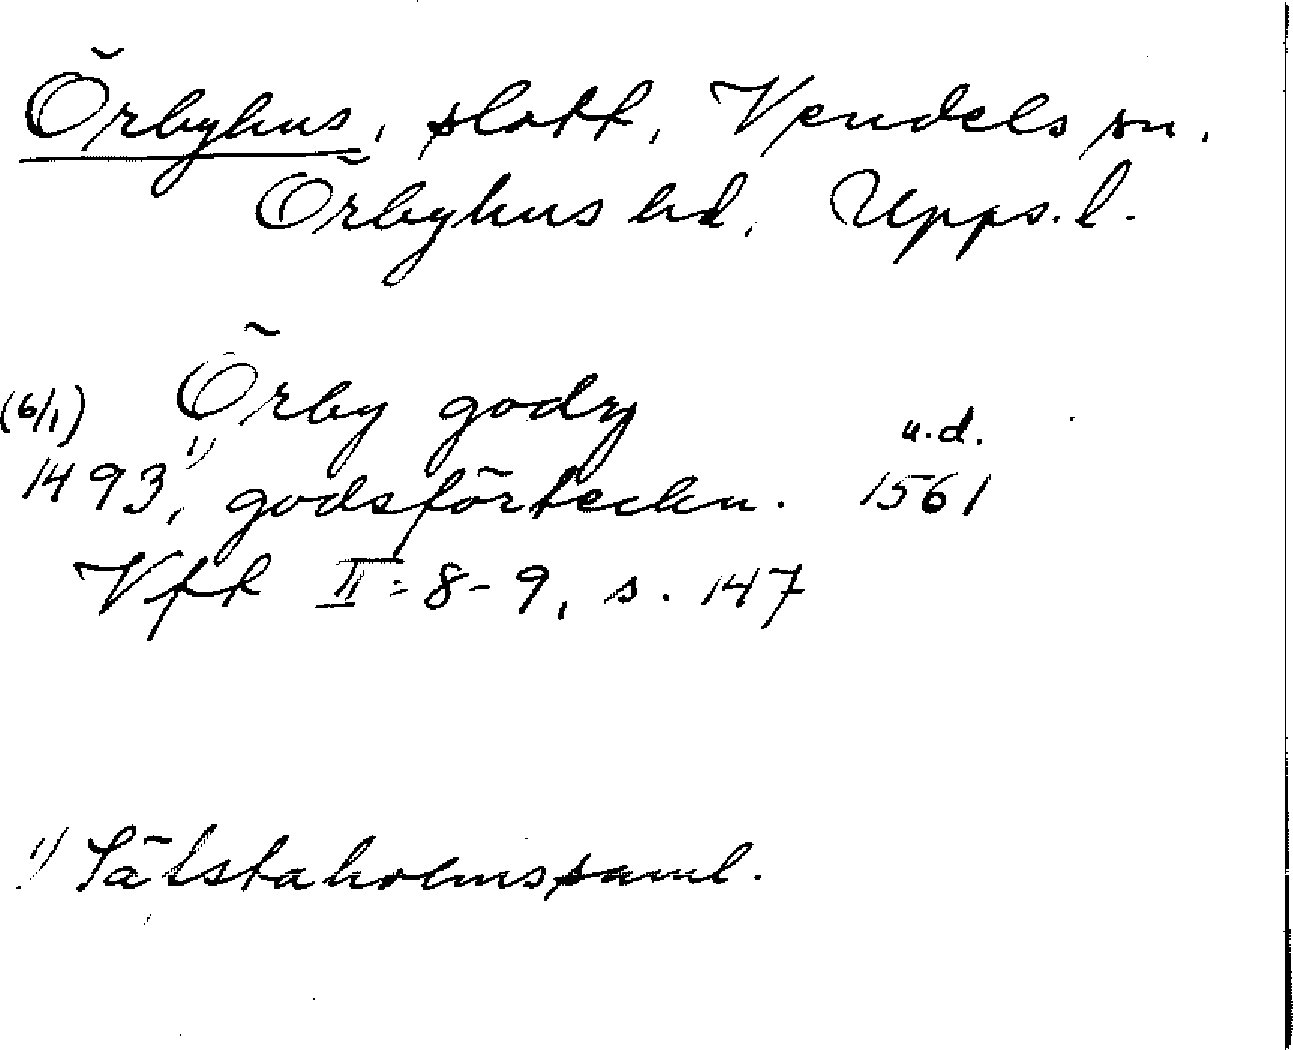 Örbyhus, slott, Vendels sn.
Örbyhus hd, Upps. l.
Örby godz
(6/1) u.d.
1493,¹⁾ godsförteckn. 1561
Vfk II:8-9, s. 147
¹⁾ Sätstaholmssaml.